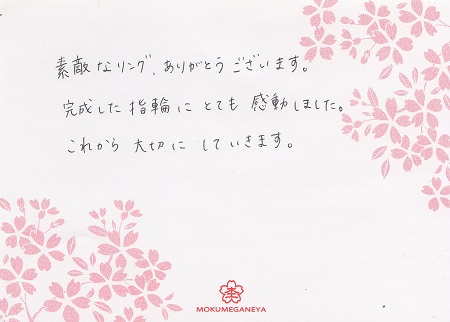 素敵なリング、ありがとうございます。
完成した指輪にとても感動しました。
これから大切にしていきます。
MOKUMEGANEYA